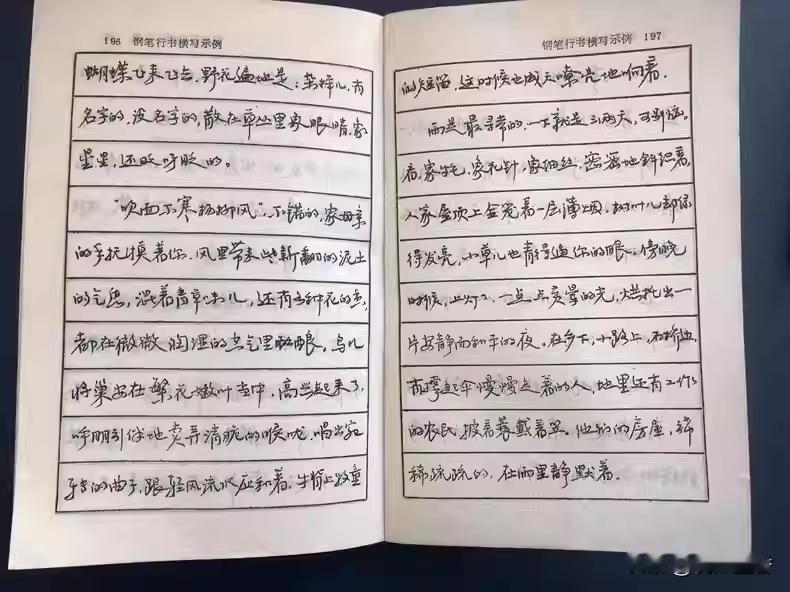 198 钢笔行书横写示例
蝴蝶飞来飞去。野花遍地是：杂样儿，有
名字的，没名字的，散在草丛里象眼睛，象
星星，还眨呀眨的。
“吹面不寒杨柳风”，不错的，象母亲
的手抚摸着你。风里带来些新翻的泥土
的气息，混着青草味儿，还有各种花的香，
都在微微润湿的空气里酝酿。鸟儿
将巢安在繁花嫩叶当中，高兴起来了，
呼朋引伴地卖弄清脆的喉咙，唱出宛
转的曲子，跟轻风流水应和着。牛背上牧童
钢笔行书横写示例 197
的短笛，这时候也成天嘹亮地响着。
雨是最寻常的，一下就是三两天。可别恼。
看，象牛毛，象花针，象细丝，密密地斜织着，
人家屋顶上全笼着一层薄烟。树叶儿却绿
得发亮，小草儿也青得逼你的眼。傍晚
时候，上灯了，一点点黄晕的光，烘托出一
片安静而和平的夜。在乡下，小路上，石桥边，
有撑起伞慢慢走着的人，地里还有工作
的农民，披着蓑戴着笠。他们的房屋，稀
稀疏疏的，在雨里静默着。